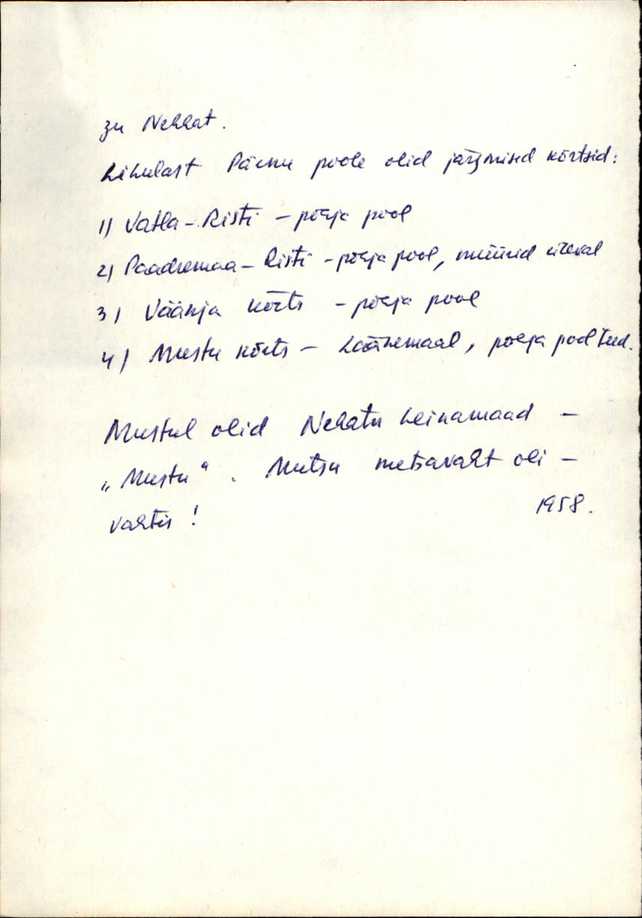 zu Nehhat.
Lihulast Pärnu poole olid järgmised kõrtsid:
1) Vatla-Risti - põhja pool
2) Paadremaa - Risti - põhja pool, müürid üleval
3) Väänja kõrts - põhja pool
4) Mustu kõrts - Läänemaal, põhja pool teed.
Mustul olid Nehatu heinamaad -
„Mustu“. Mutsu metsavaht oli -
vahtis! 1958.